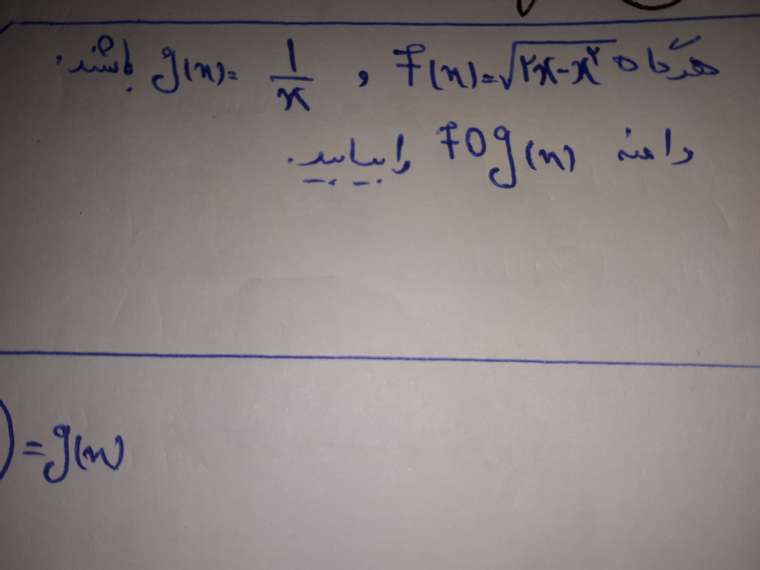 هرگاه f(x)=√۲x-x² , g(x)= 1/x باشند.
دامنه fog(x) را بیابید.
)=g(x)